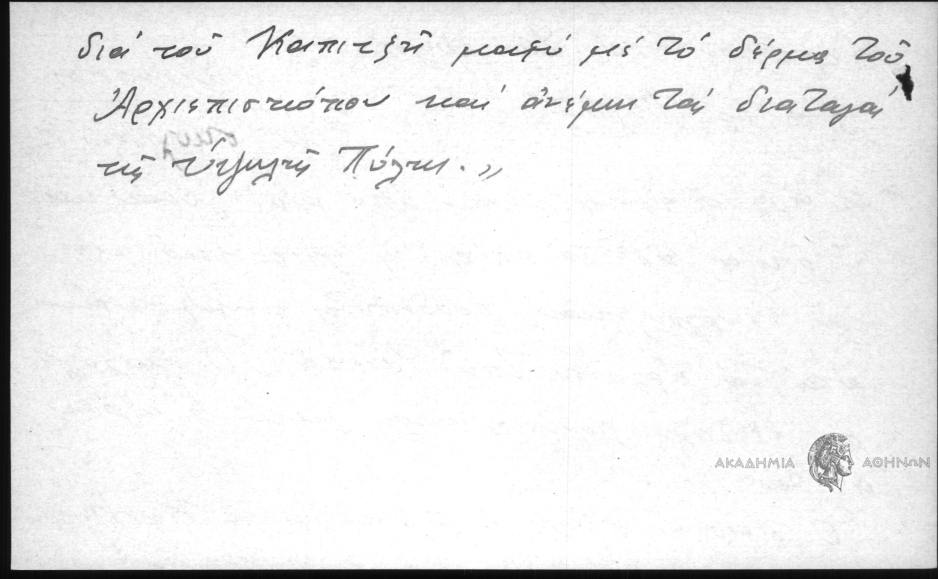 διά τοῦ Καπιτζῆ μαζύ μέ τό δέρμα τοῦ
Ἀρχιεπισκόπου καί ἀνέμενε τάς διαταγάς
τῆς Ὑψηλῆς Πύλης.»
ΑΚΑΔΗΜΙΑ ΑΘΗΝΩΝ